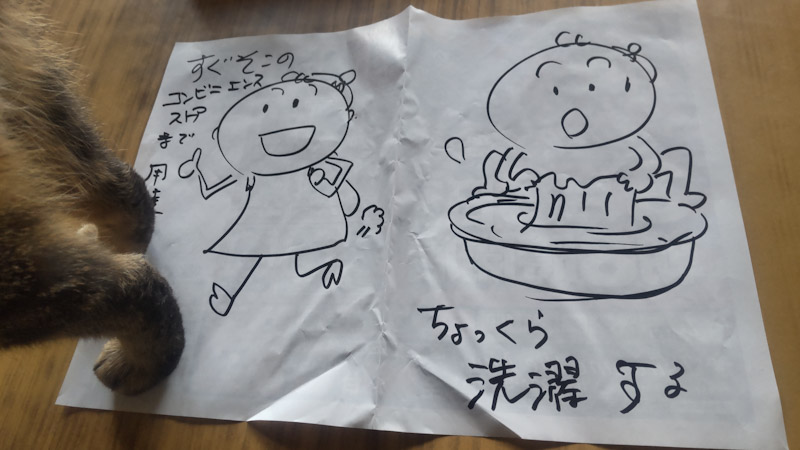 すぐそこの
コンビニエンス
ストア
まで
用
ちょっくら
洗濯する